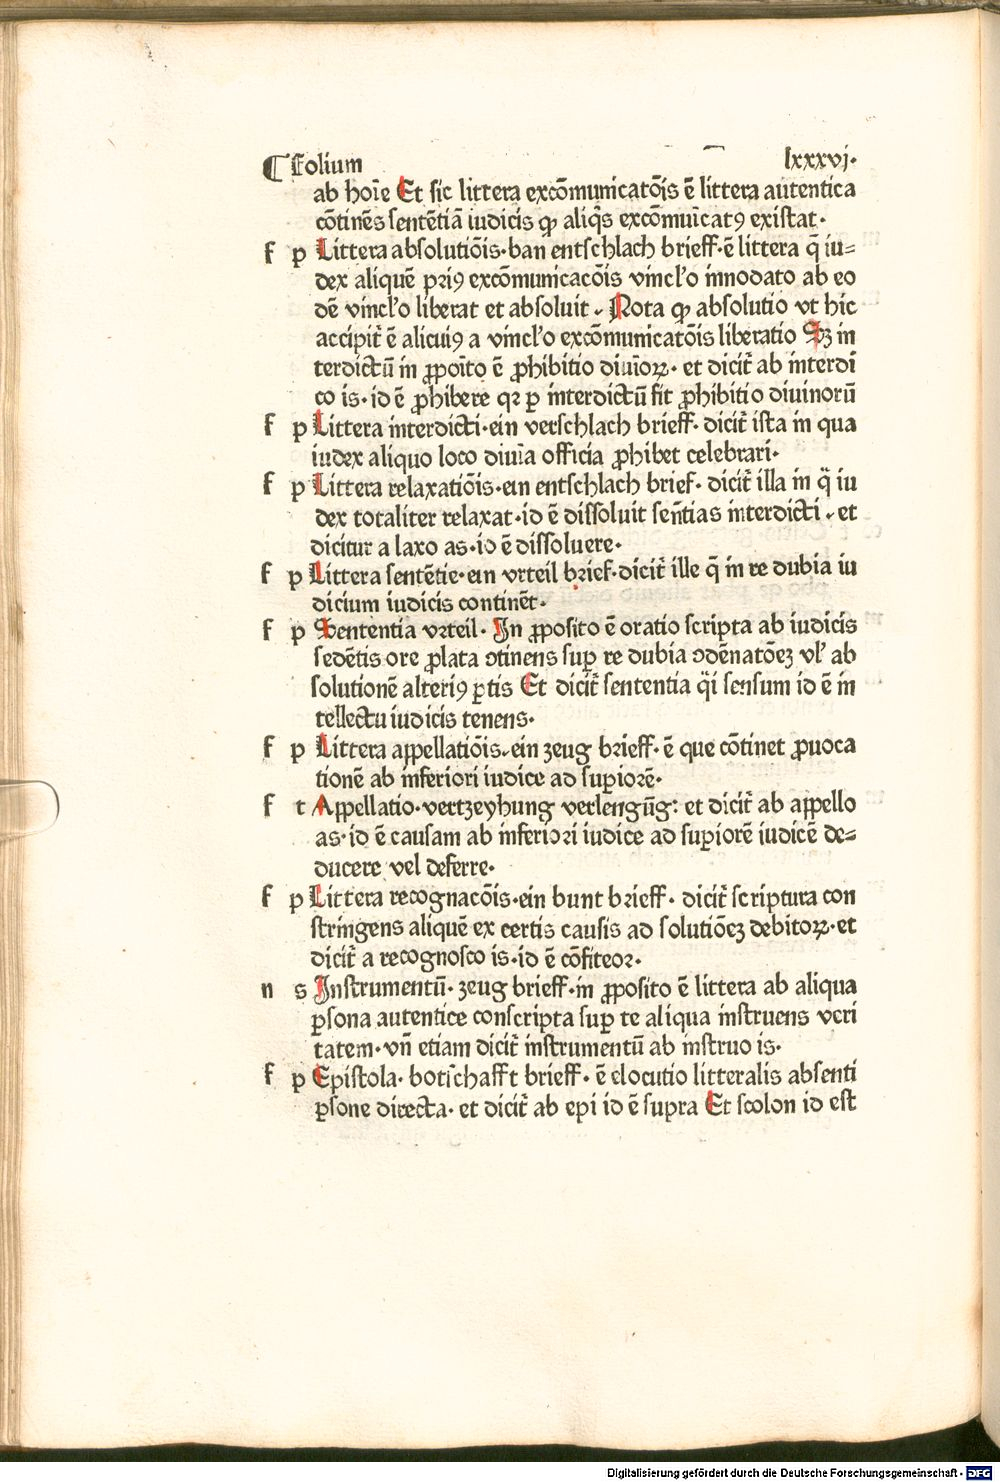 ⸿ Folium lxxxvj.
ab hoīe Et sic littera excōmunicatōis ē littera autentica
cōtinēs sentētiā iudicis ꝙ aliq̄s excōmuīcatꝰ existat.
f p Littera absolutiōis. ban entschlach brieff. ē littera q̄ iu⸗
dex aliquē priꝰ excōmunicacōis vincl'o innodato ab eo
dē vincl'o liberat et absoluit. Nota ꝙ absolutio vt hic
accipit̄ ē alicuiꝰ a vincl'o excōmunicatōis liberatio Sꝫ in
terdictū in ꝓpoīto ē ꝓhibitio diuīoꝝ. et dicit̄ ab interdi
co is. id ē ꝓhibere qꝛ ꝑ interdictū fit ꝓhibitio diuinorū
f p Littera interdicti. ein verschlach brieff. dicit̄ ista in qua
iudex aliquo loco diuīa officia ꝓhibet celebrari.
f p Littera relaxatiōis. ein entschlach brief. dicit̄ illa in q̄ iu
dex totaliter relaxat. id ē dissoluit sen̄tias interdicti. et
dicitur a laxo as. id ē dissoluere.
f p Littera sentētie. ein vrteil brief. dicit̄ ille q̄ in re dubia iu
dicium iudicis continēt.
f p Sententia vꝛteil. In ꝓposito ē oratio scripta ab iudicis
sedētis ore ꝓlata ↄtinens suꝑ re dubia ↄdēnatōeꝫ vl' ab
solutionē alteriꝰ ꝑtis Et dicit̄ sententia q̄i sensum id ē in
tellectu iudicis tenens.
f p Littera appellatiōis. ein zeug bꝛieff. ē que cōtinet ꝓuoca
tionē ab inferiori iudice ad suꝑiorē.
f t Appellatio. vertzeyhung verlengūg: et dicit̄ ab appello
as. id ē causam ab inferioꝛi iudice ad suꝑiorē iudicē de⸗
ducere vel deferre.
f p Littera recognacōis. ein bunt bꝛieff. dicit̄ scriptura con
stringens aliquē ex certis causis ad solutiōeꝫ debitoꝝ. et
dicit̄ a recognosco is. id ē cōfiteoꝛ.
n s Instrumentū. zeug brieff. in ꝓposito ē littera ab aliqua
ꝑsona autentice conscripta suꝑ re aliqua instruens veri
tatem. vn̄ etiam dicit̄ instrumentū ab instruo is.
f p Epistola. botschafft brieff. ē elocutio litteralis absenti
ꝑsone directa. et dicit̄ ab epi id ē supra Et scolon id est
Digitalisierung gefördert durch die Deutsche Forschungsgemeinschaft - DFG